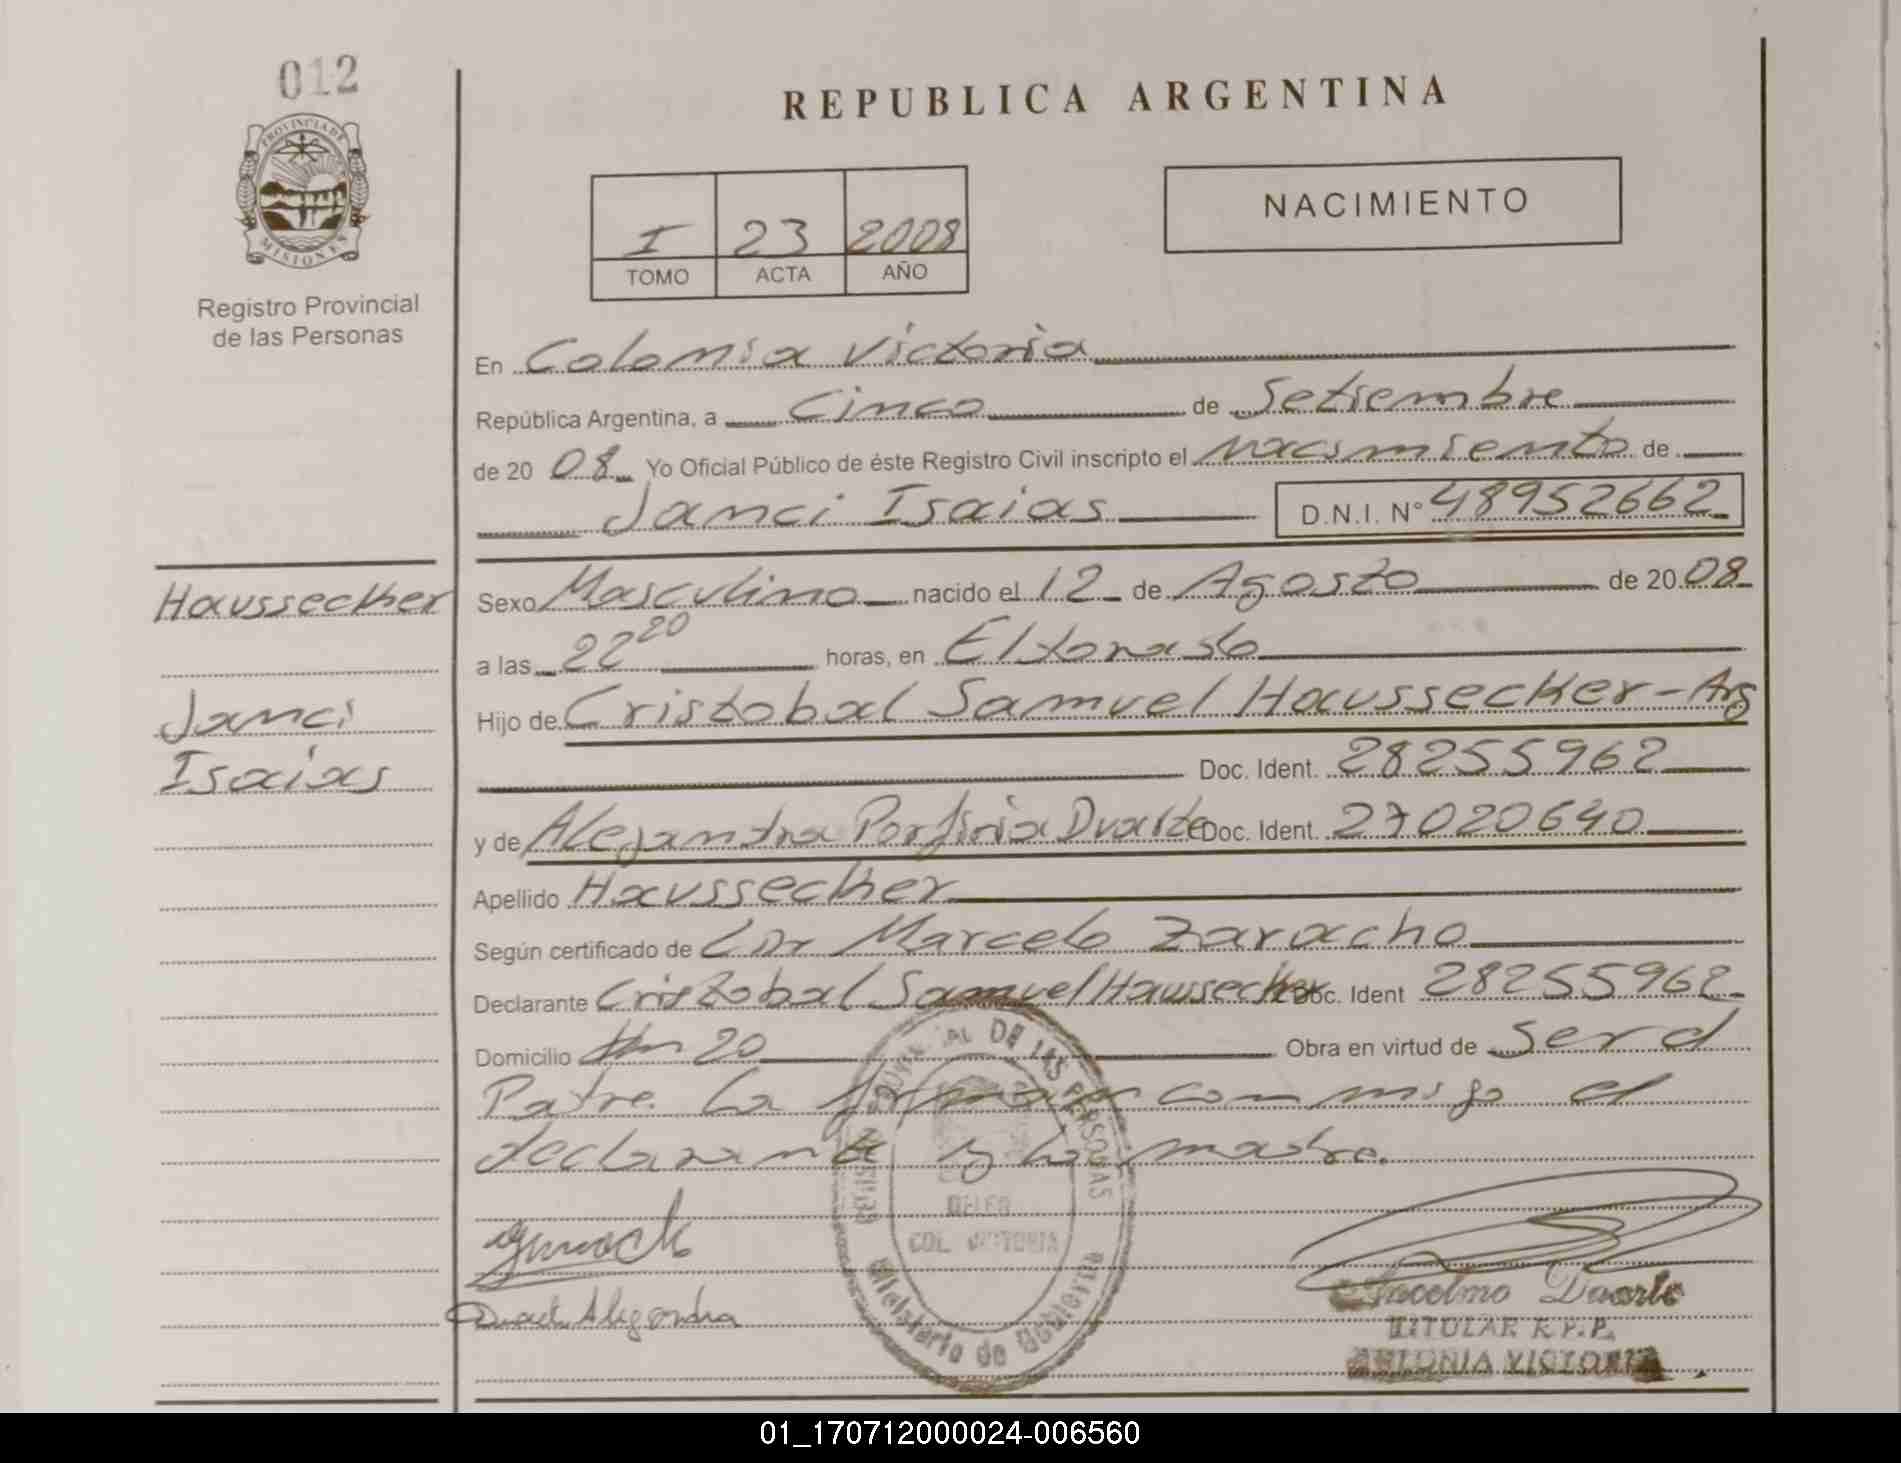 012
PROVINCIA DE
MISIONES
Registro Provincial
de las Personas
Haussecker
Janci
Isaias
REPUBLICA ARGENTINA
I 23 2008
TOMO ACTA AÑO
NACIMIENTO
En Colonia Victoria
República Argentina, a Cinco de Setiembre
de 20 08 Yo Oficial Público de éste Registro Civil inscripto el Nacimiento de
Janci Isaias D.N.I. N° 48952662
Sexo Masculino nacido el 12 de Agosto de 20 08
a las 22 20 horas, en Eldorado
Hijo de Cristobal Samuel Haussecker - Arg
Doc. Ident. 28255962
y de Alejandra Porfiria Duarte Doc. Ident. 27020640
Apellido Haussecker
Según certificado de Dr Marcelo Zaracho
Declarante Cristobal Samuel Haussecker Doc. Ident 28255962
Domicilio Km 20 Obra en virtud de ser el
Padre. La firman conmigo el
declarante y la madre.
DE LAS PERSONAS
COL VICTORIA
Ministerio de Gobierno
Duarte Alejandra
Anselmo Duarte
TITULAR R.P.P.
COLONIA VICTORIA
01_170712000024-006560